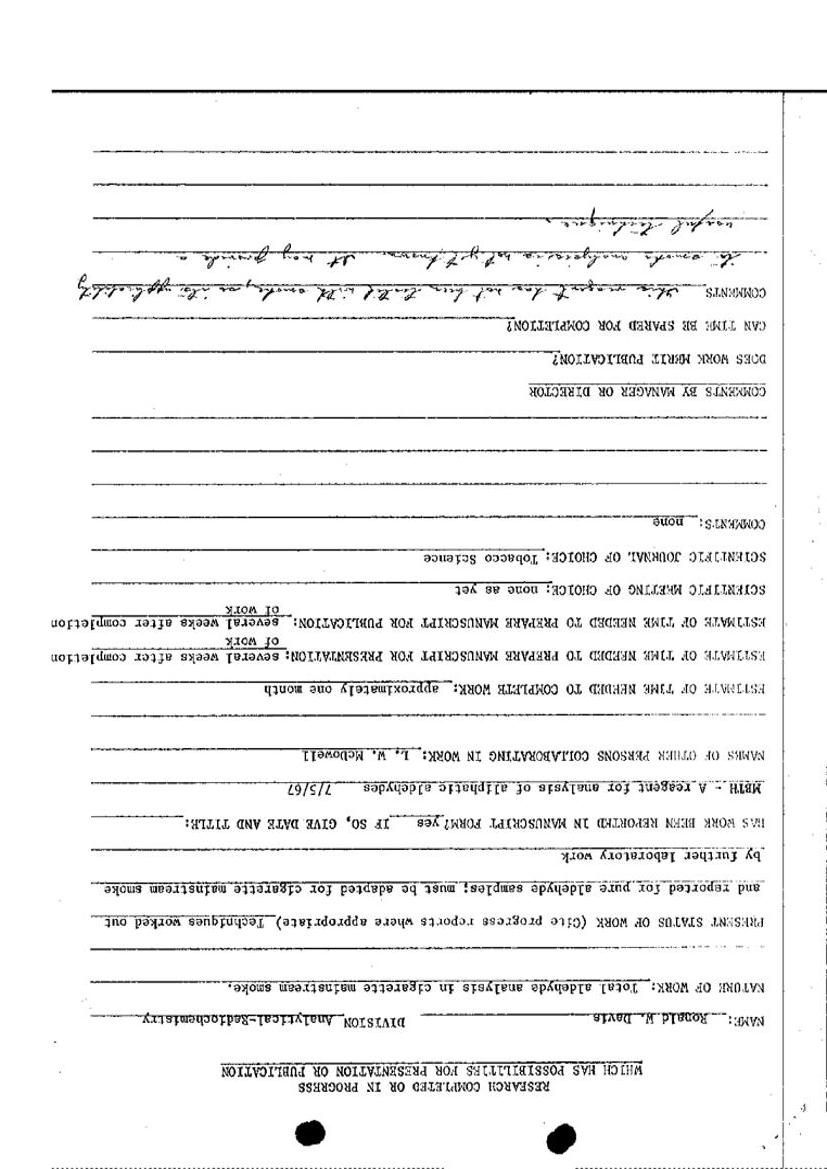 RESEARCH COMPLETED OR IN PROGRESS
WHICH HAS POSSIBILITIES FOR PRESENTATION OR PUBLICATION
NAME: Ronald W. Davis DIVISION Analytical-Radiochemistry
NATURE OF WORK: Total aldehyde analysis in cigarette mainstream smoke.
PRESENT STATUS OF WORK (Cite progress reports where appropriate) Techniques worked out
and reported for pure aldehyde samples; must be adapted for cigarette mainstream smoke
by further laboratory work
HAS WORK BEEN REPORTED IN MANUSCRIPT FORM? yes IF SO, GIVE DATE AND TITLE:
MBTH - A reagent for analysis of aliphatic aldehydes 7/5/67
NAMES OF OTHER PERSONS COLLABORATING IN WORK: L. W. McDowell
ESTIMATE OF TIME NEEDED TO COMPLETE WORK: approximately one month
ESTIMATE OF TIME NEEDED TO PREPARE MANUSCRIPT FOR PRESENTATION: several weeks after completion
of work
ESTIMATE OF TIME NEEDED TO PREPARE MANUSCRIPT FOR PUBLICATION: several weeks after completion
of work
SCIENTIFIC MEETING OF CHOICE: none as yet
SCIENTIFIC JOURNAL OF CHOICE: Tobacco Science
COMMENTS: none
COMMENTS BY MANAGER OR DIRECTOR
DOES WORK MERIT PUBLICATION?
CAN TIME BE SPARED FOR COMPLETION?
COMMENTS This reagent has not been tested with smoke, so its applicability
to smoke analysis is not yet known. It may provide a
useful technique.